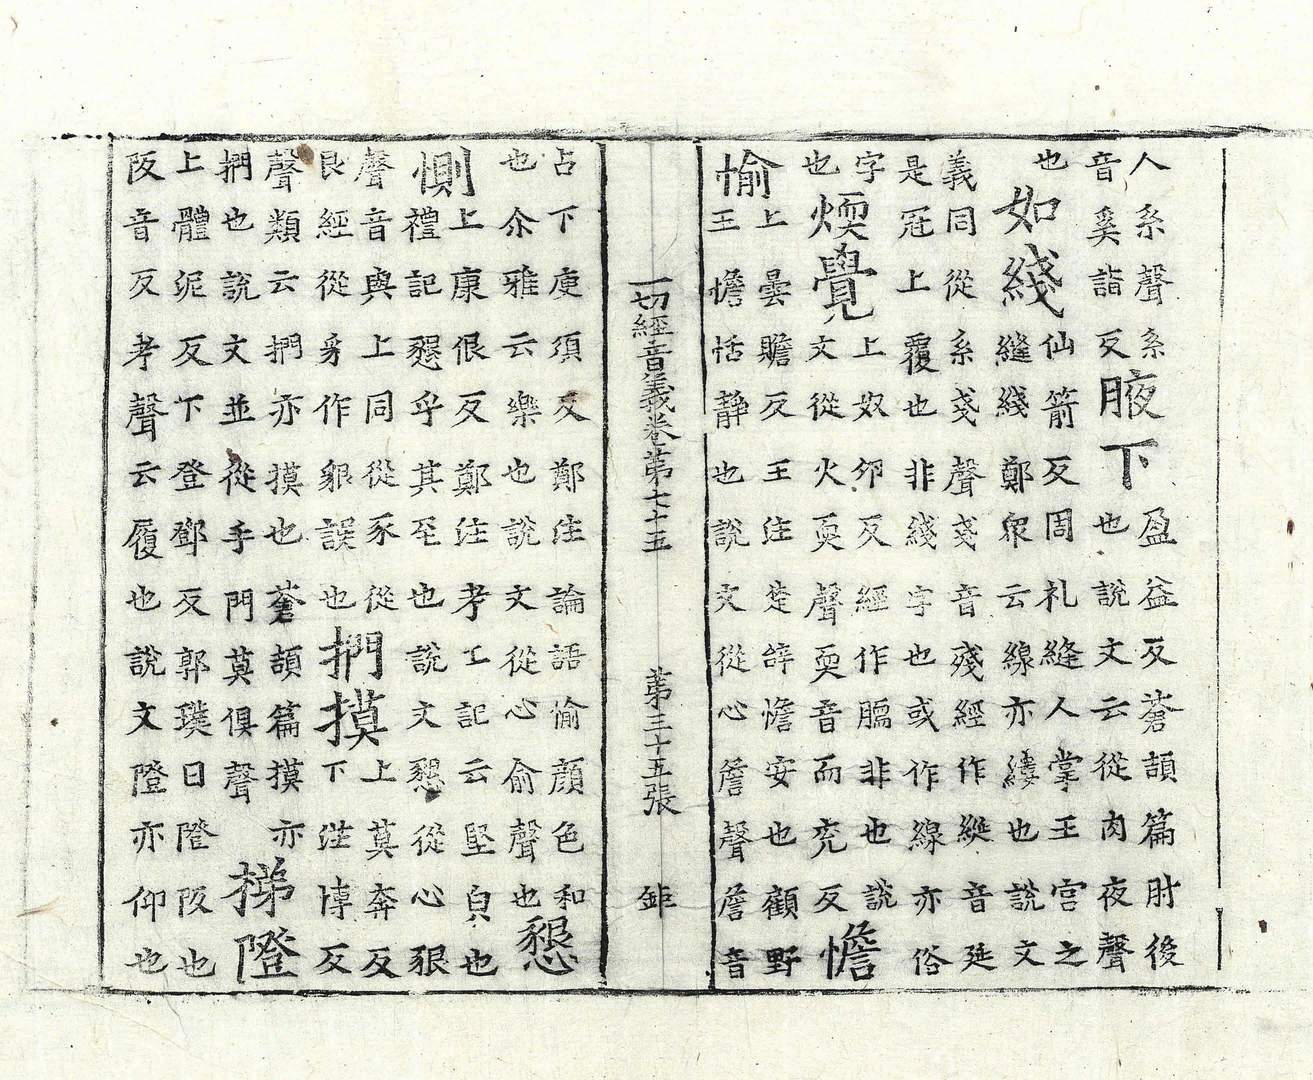 人系聲系
音奚詣反
腋下
盈益反蒼頡篇肘後
也說文云從肉夜聲
也
如綫
仙箭反周礼縫人掌王宮之
縫綫鄭衆云線亦縷也說文
義同從系戔聲戔音殘經作綖音延
是冠上覆也非綫字也或作線亦俗
字
也
煗覺
上奴夘反經作腝非也說
文從火耎聲耎音而兖反
憺
愉
上曇贍反王注楚辝憺安也顧野
王憺恬静也說文從心詹聲詹音
一切經音義卷第七十五 第三十五張 鉅
占下庾須反鄭注論語愉顏色和
也尒雅云樂也說文從心俞聲也
懇
惻
上康佷反鄭注考工記云堅皃也
禮記懇乎其至也說文懇從心豤
聲音與上同從豕從
艮經從豸作貇誤也
捫摸
上莫奔反
下汒博反
聲類云捫亦摸也蒼頡篇摸亦
捫也說文並從手門莫俱聲
梯隥
上體泥反下登鄧反郭璞曰隥阪也
阪音反考聲云履也說文隥亦仰也